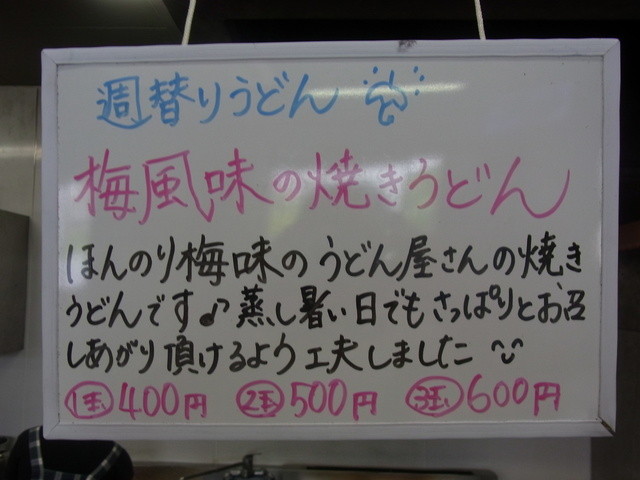 週替りうどん
梅風味の焼きうどん
ほんのり梅味のうどん屋さんの焼き
うどんです♪蒸し暑い日でもさっぱりとお召
しあがり頂けるよう工夫しました
1玉400円 2玉500円 3玉600円